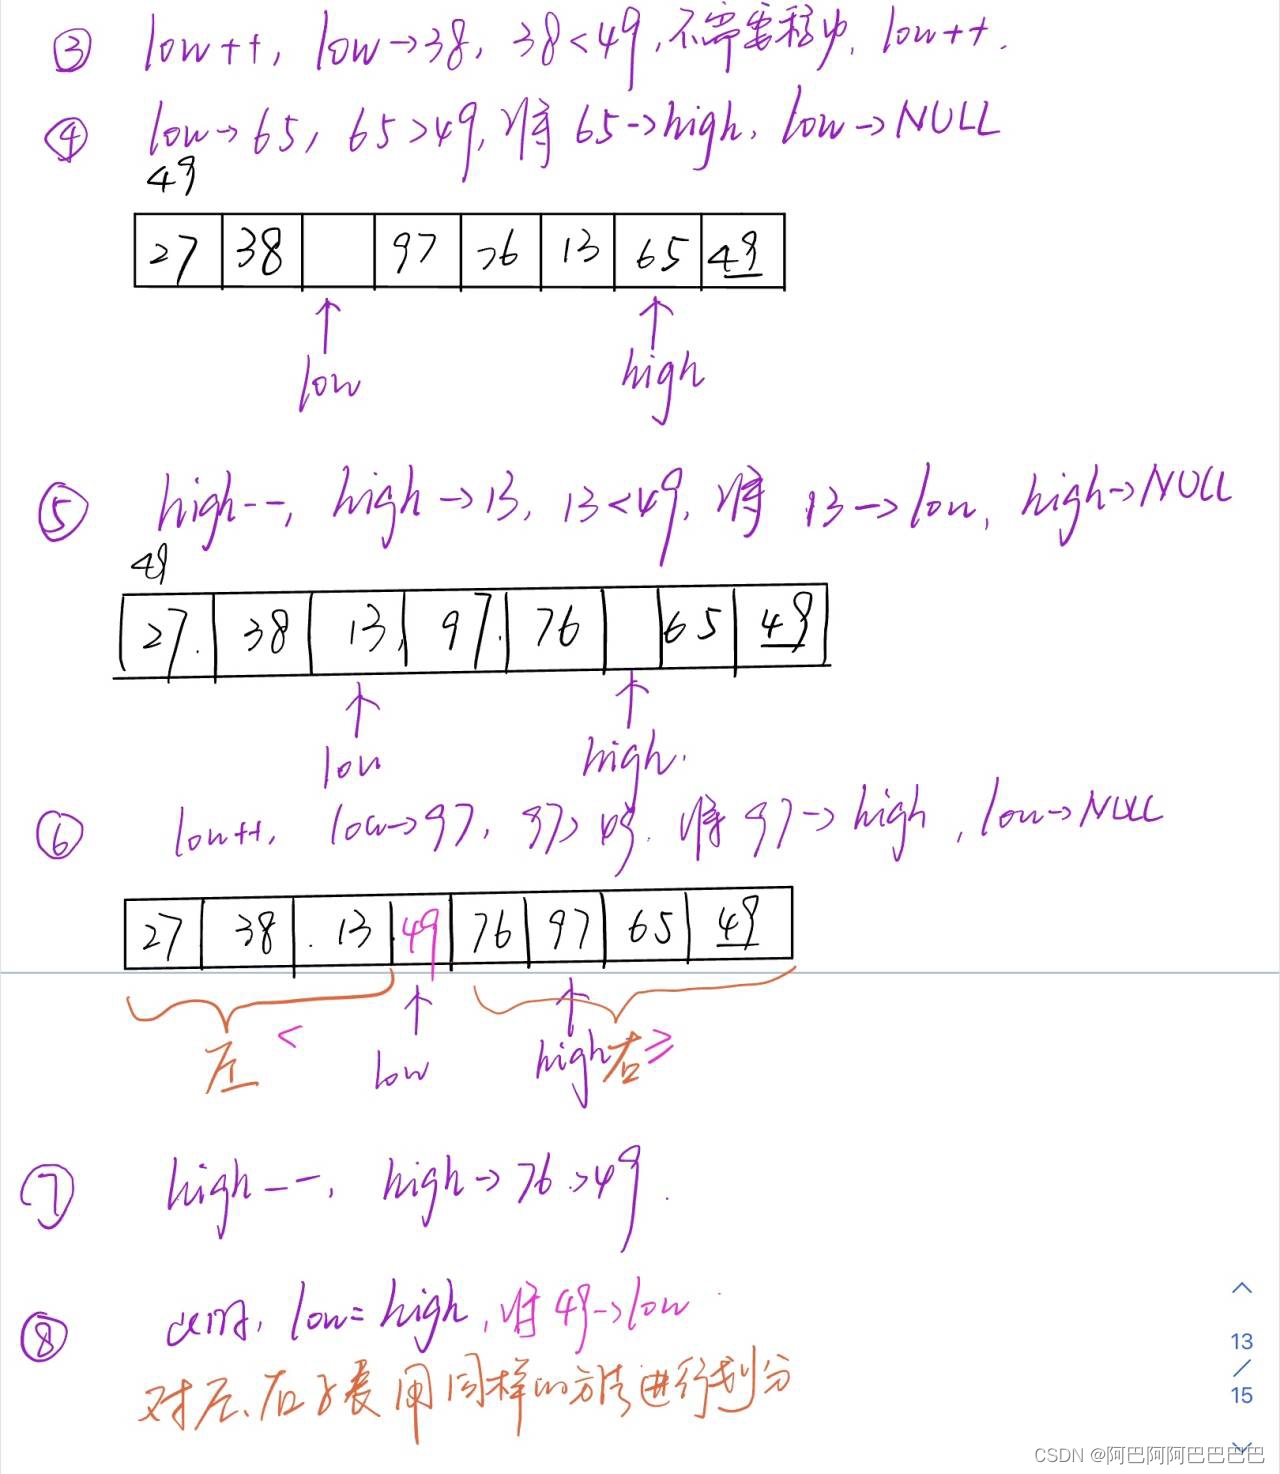 ③ low++, low→38, 38<49,不需要移动, low++.
④ low→65, 65>49,将65→high, low→NULL
49
27 38 97 76 13 65 49
low high
⑤ high--, high→13, 13<49, 将 13→low, high→NULL
49
27. 38 13, 97. 76 65 49
low high.
⑥ low++, low→97, 97>49. 将97→high, low→NULL
27 38 .13 49 76 97 65 49
左 < low high 右 ≥
⑦ high--, high→76>49.
⑧ 此时, low=high, 将49→low
对左、右子表用同样的方法进行划分
13
/
15
CSDN @阿巴阿阿巴巴巴巴